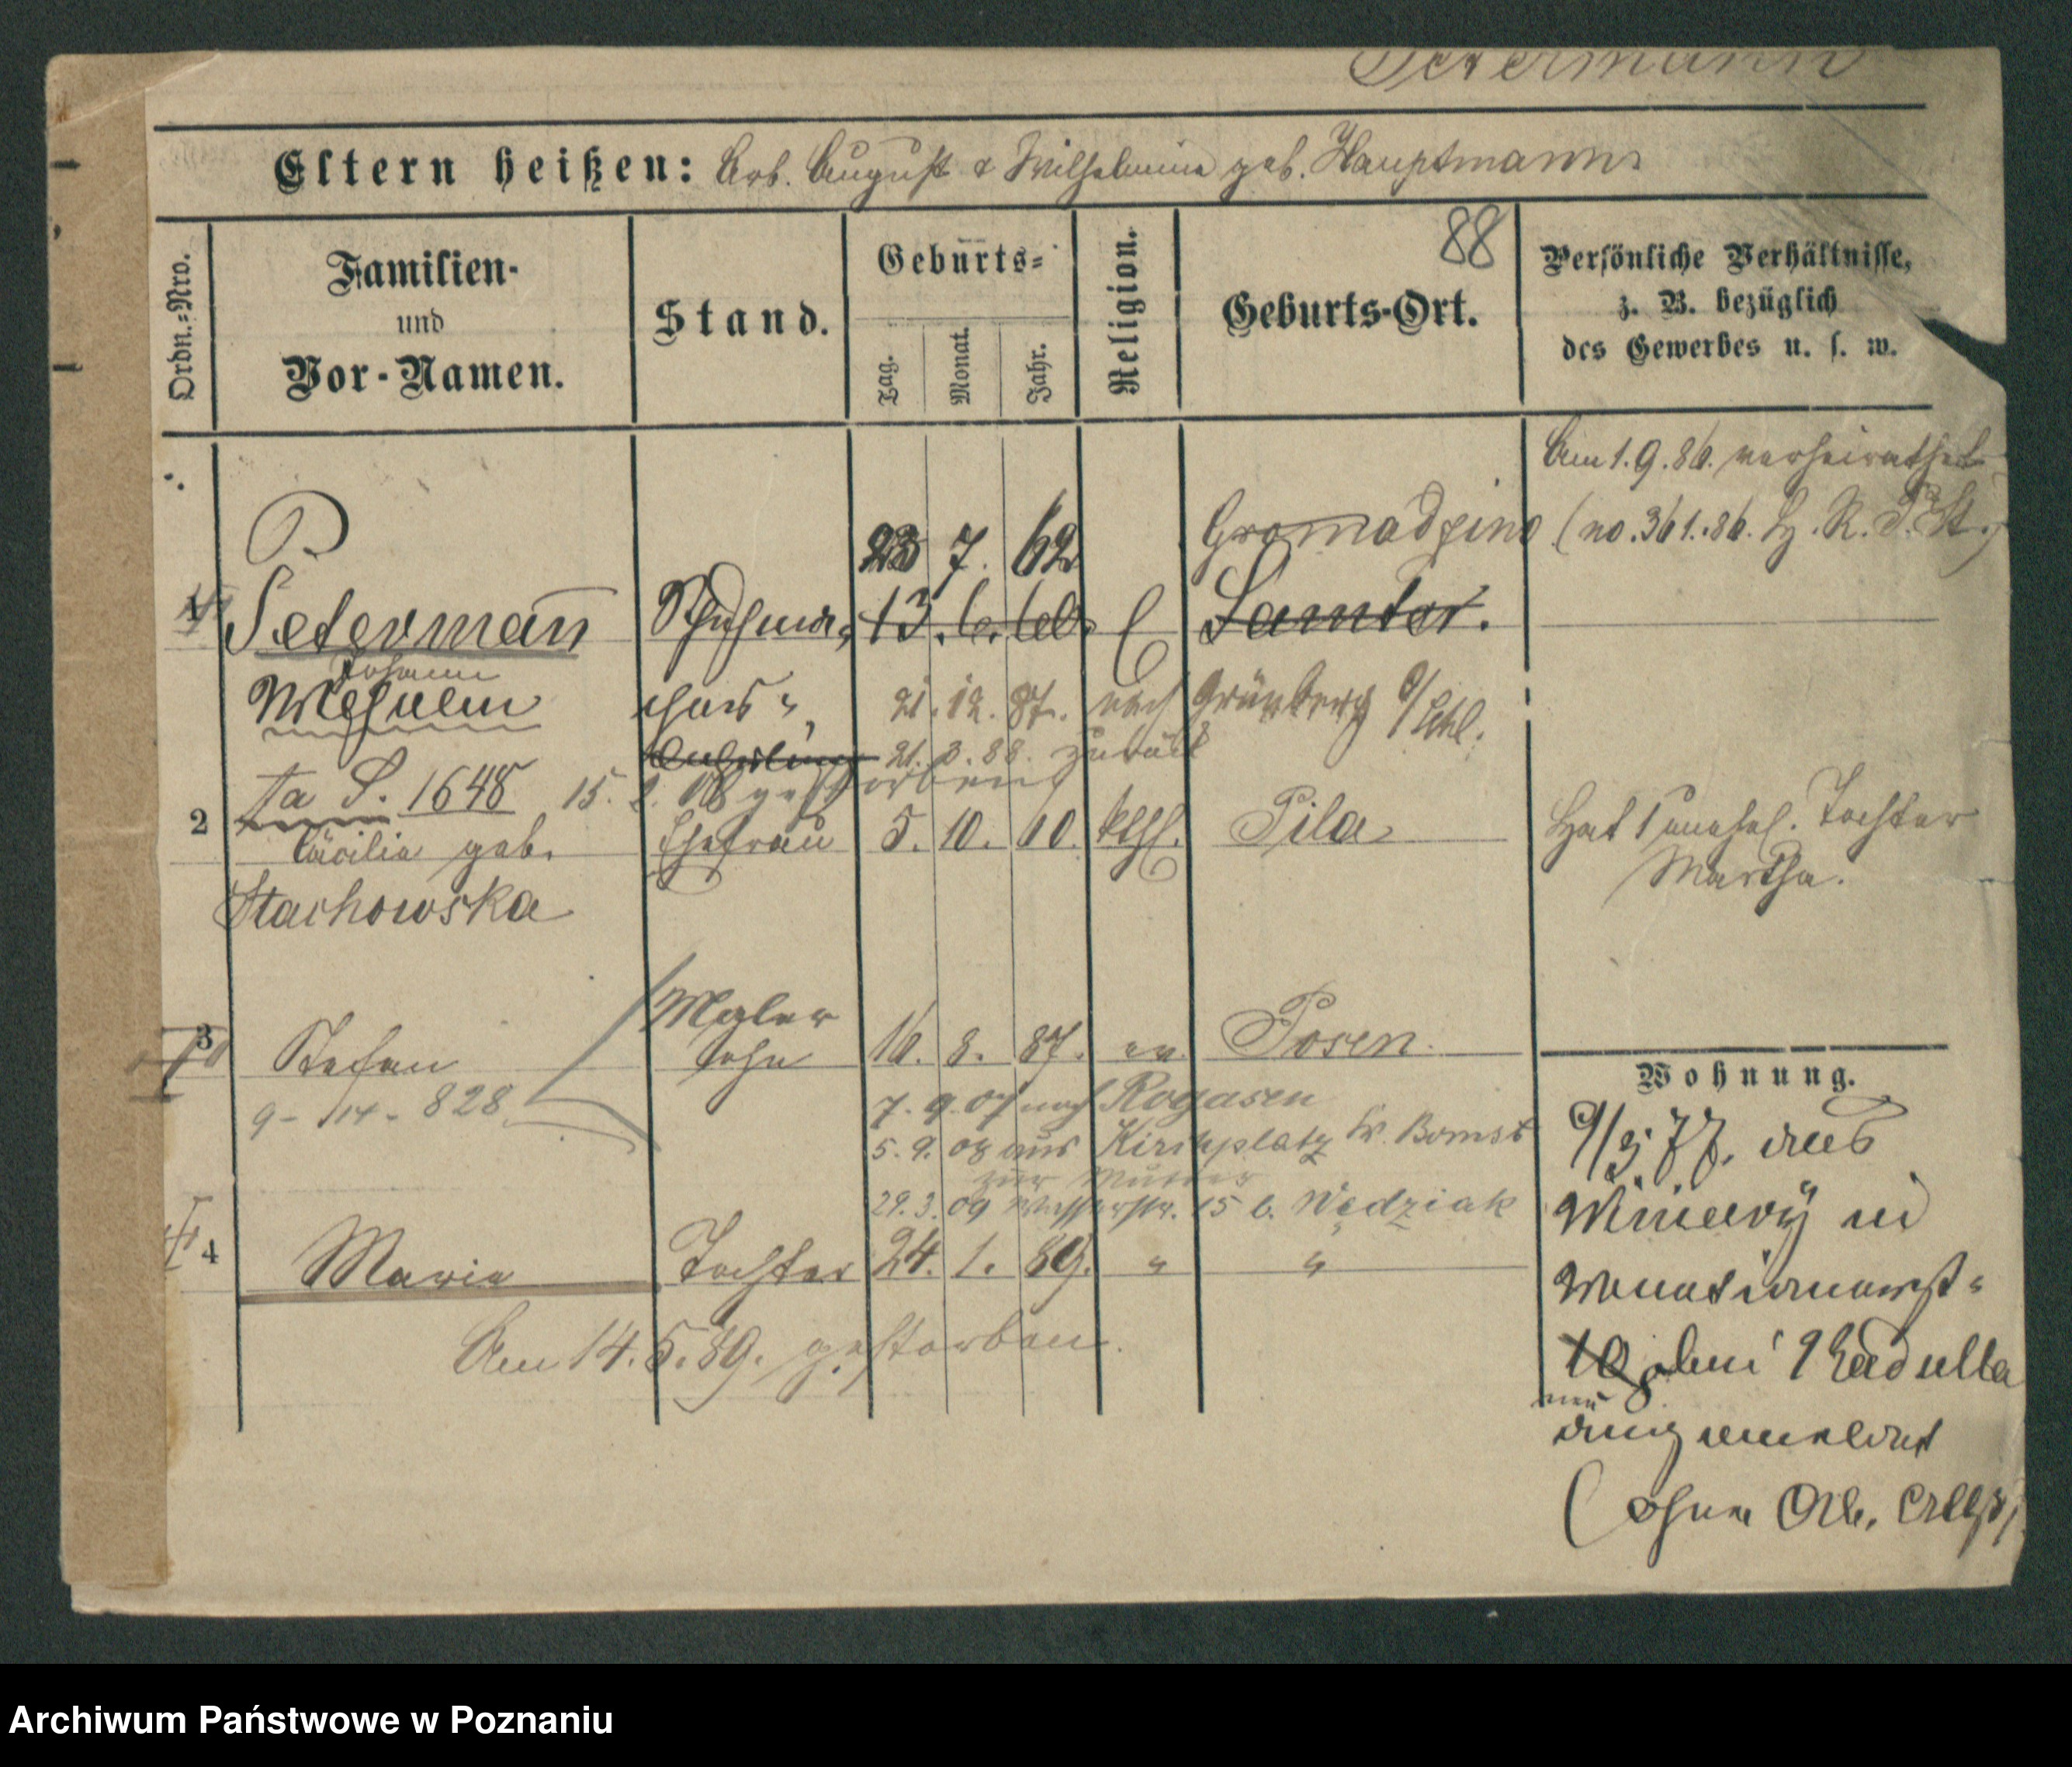 Petermann
Eltern heißen: Arb. August & Wilhelmine geb. Hauptmann
88
Ordn.-Nro.
Familien-
und
Vor-Namen.
Stand.
Geburts-
Tag.
Monat.
Jahr.
Religion.
Geburts-Ort.
Persönliche Verhältnisse,
z. B. bezüglich
des Gewerbes u. s. w.
Am 1. 9. 86. verheirathet
(no. 361. 86. H. R. P. St.)
P
23 7. 62 Gromadzino
1 Petermann Schuhma- 13. 6. Samter.
Johann
Wilhelm 21. 12. 87. nach Grünberg i/Schl.
21. 3. 88. zurück
S. 1648 15. 08 gestorben
2 Cäcilia geb. Ehefrau 5. 10. 60. kthl. Pila Hat 1 unehel. Tochter
Martha.
Stachowska
Maler
3 Stefan Sohn 16. 8. 87. ev. Posen.
9 - 14 - 828
7. 9. 07 nach Rogasen
5. 9. 08 aus Kirchplatz Kr. Bomst
zur Mutter
29. 3. 09 Wasserstr. 15 b. Wędziak
4 Maria Tochter 24. 1. 89. " "
Am 14. 5. 89. gestorben.
Wohnung.
9/3. 77. aus
Winiary in
10 bei
neu
angemeldet
(ohne
Archiwum Państwowe w Poznaniu